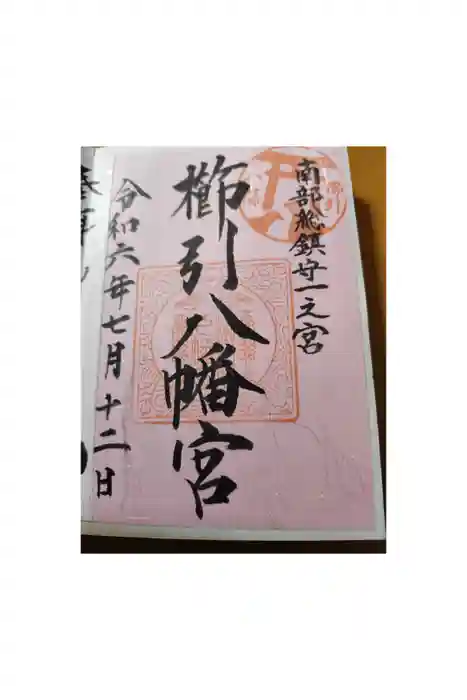 南部総鎮守一之宮
櫛引八幡宮
令和六年七月十二日